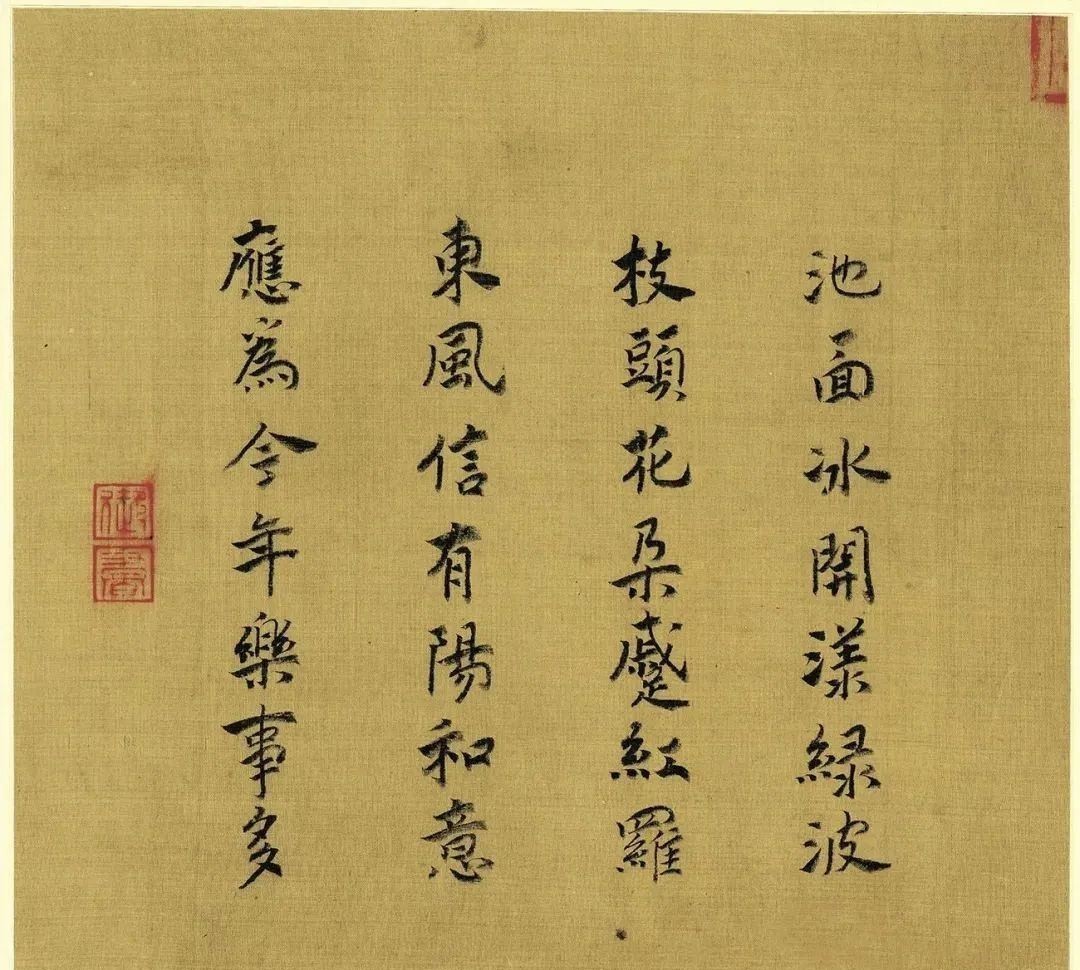 池面冰開漾緑波
枝頭花朵蹙紅羅
東風信有陽和意
應為今年樂事多
御書